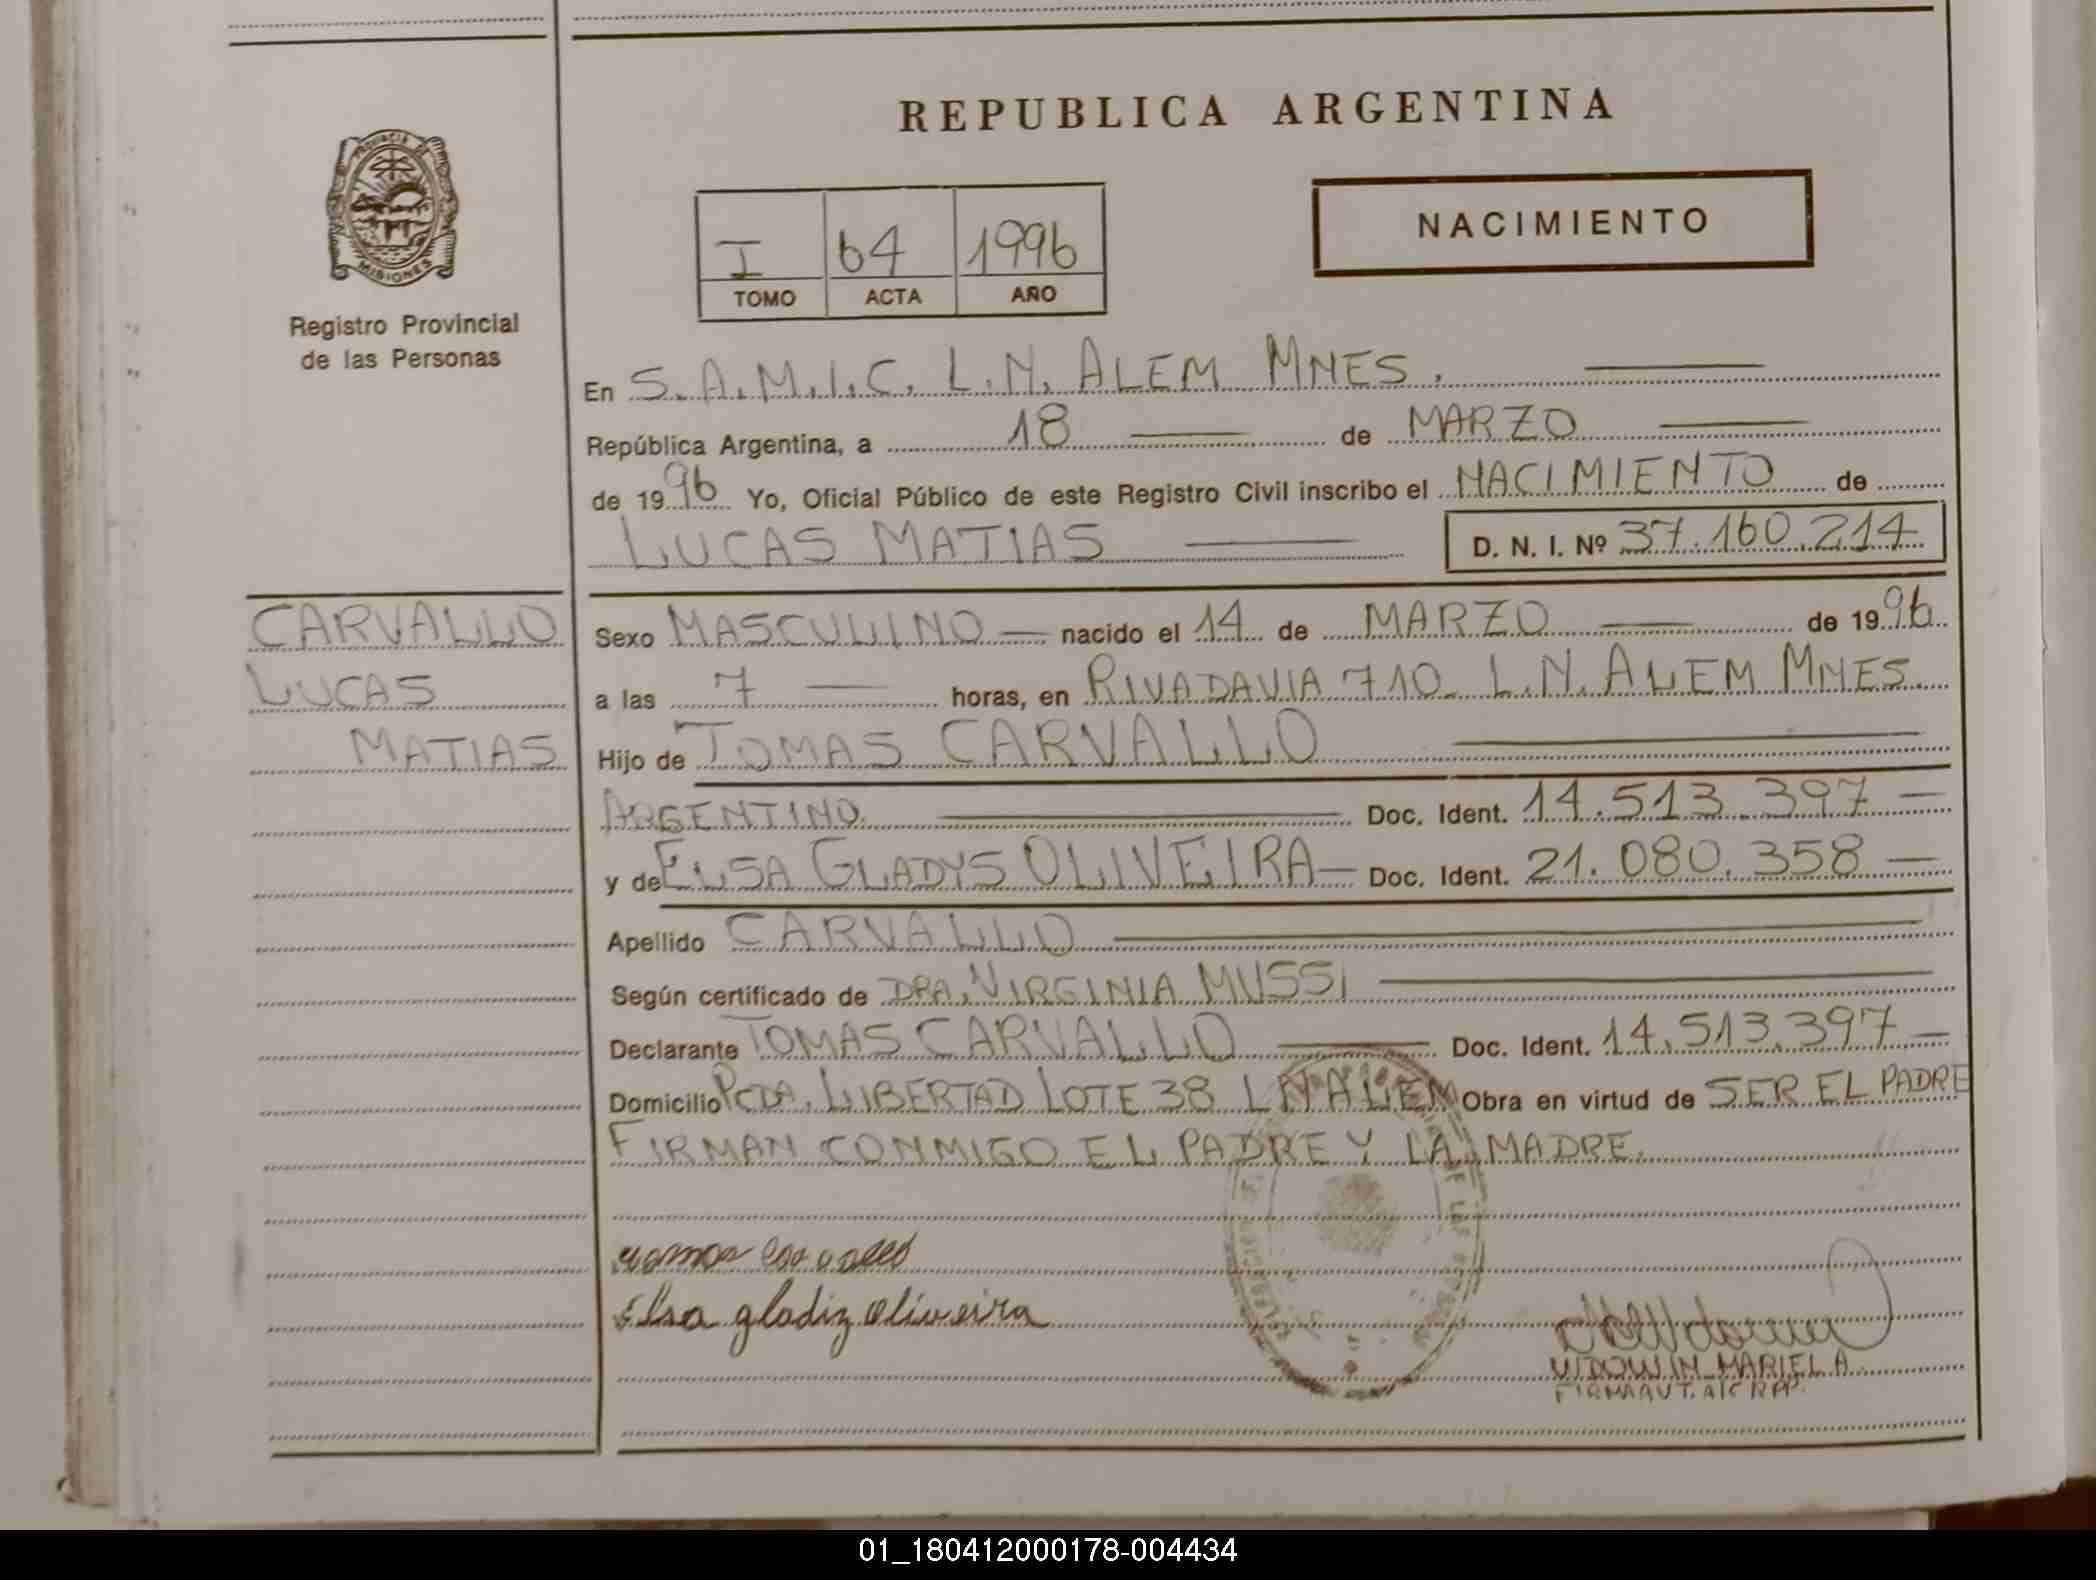 REPUBLICA ARGENTINA
PROVINCIA DE
MISIONES
Registro Provincial
de las Personas
I 64 1996
TOMO ACTA AÑO
NACIMIENTO
En S.A.M.I.C. L.N. ALEM MNES.
República Argentina, a 18 de MARZO
de 1996 Yo, Oficial Público de este Registro Civil inscribo el NACIMIENTO de
LUCAS MATIAS D. N. I. Nº 37.160.214
CARVALLO
LUCAS
MATIAS
Sexo MASCULINO nacido el 14 de MARZO de 1996
a las 7 horas, en RIVADAVIA 710 L.N. ALEM MNES.
Hijo de TOMAS CARVALLO
ARGENTINO Doc. Ident. 14.513.397
y de ELSA GLADYS OLIVEIRA Doc. Ident. 21.080.358
Apellido CARVALLO
Según certificado de DRA. VIRGINIA MUSSI
Declarante TOMAS CARVALLO Doc. Ident. 14.513.397
Domicilio PCDA. LIBERTAD LOTE 38 L N ALEM Obra en virtud de SER EL PADRE
FIRMAN CONMIGO EL PADRE Y LA MADRE.
Elsa gladiz oliveira
MARIELA
01_180412000178-004434